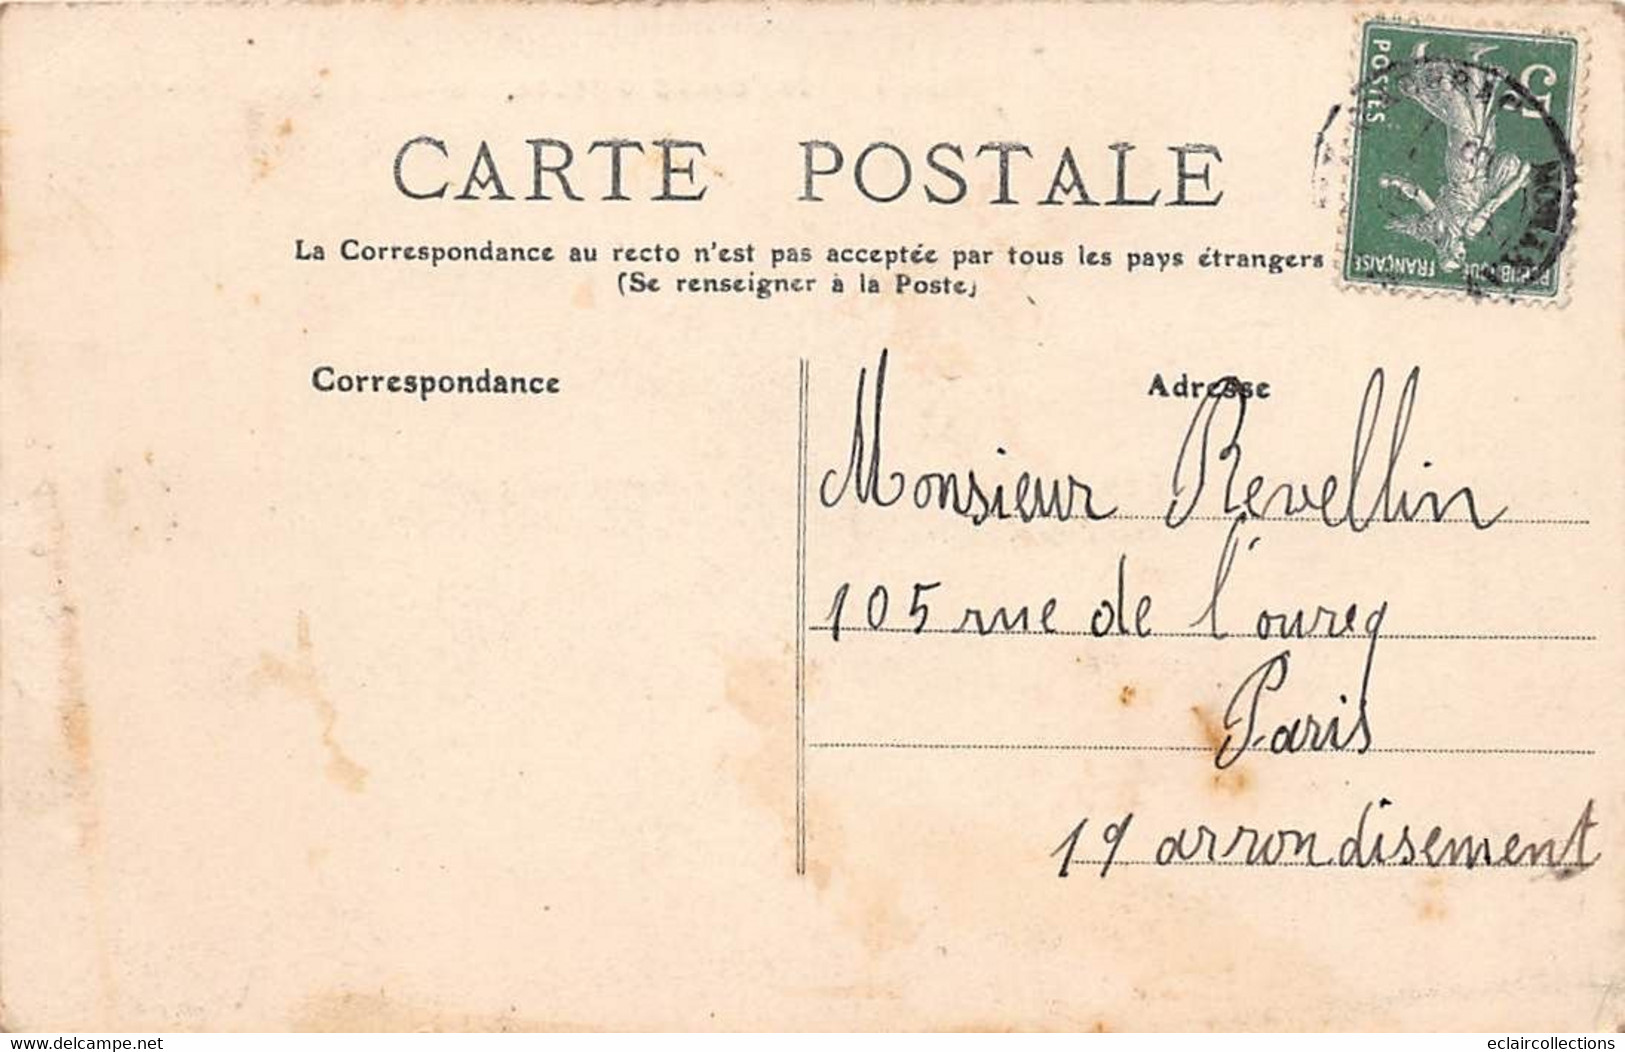 CARTE POSTALE
La Correspondance au recto n'est pas acceptée par tous les pays étrangers
(Se renseigner à la Poste)
5
POSTES
RÉPUBLIQUE FRANÇAISE
Correspondance
Adresse
Monsieur Revellin
105 rue de l'ourcq
Paris
19 arrondisement
www.eclaircollections.delcampe.net
eclaircollections